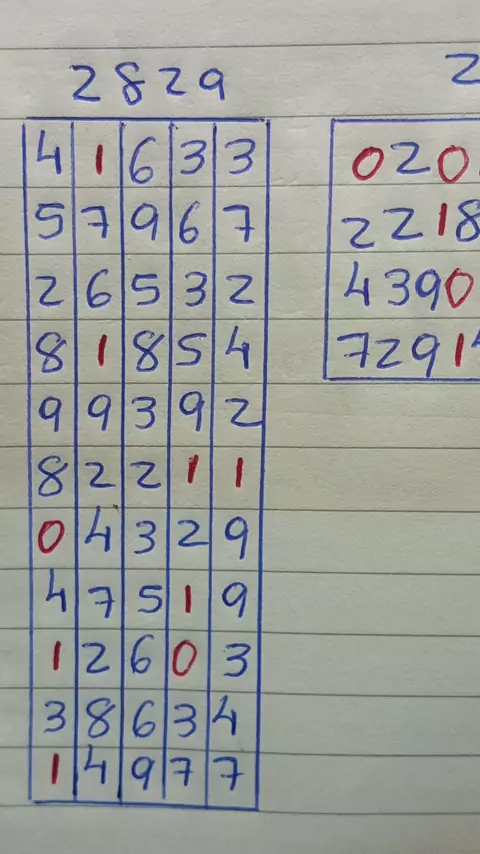 2829
4 1 6 3 3
5 7 9 6 7
2 6 5 3 2
8 1 8 5 4
9 9 3 9 2
8 2 2 1 1
0 4 3 2 9
4 7 5 1 9
1 2 6 0 3
3 8 6 3 4
1 4 9 7 7
2
020
2218
4390
7291